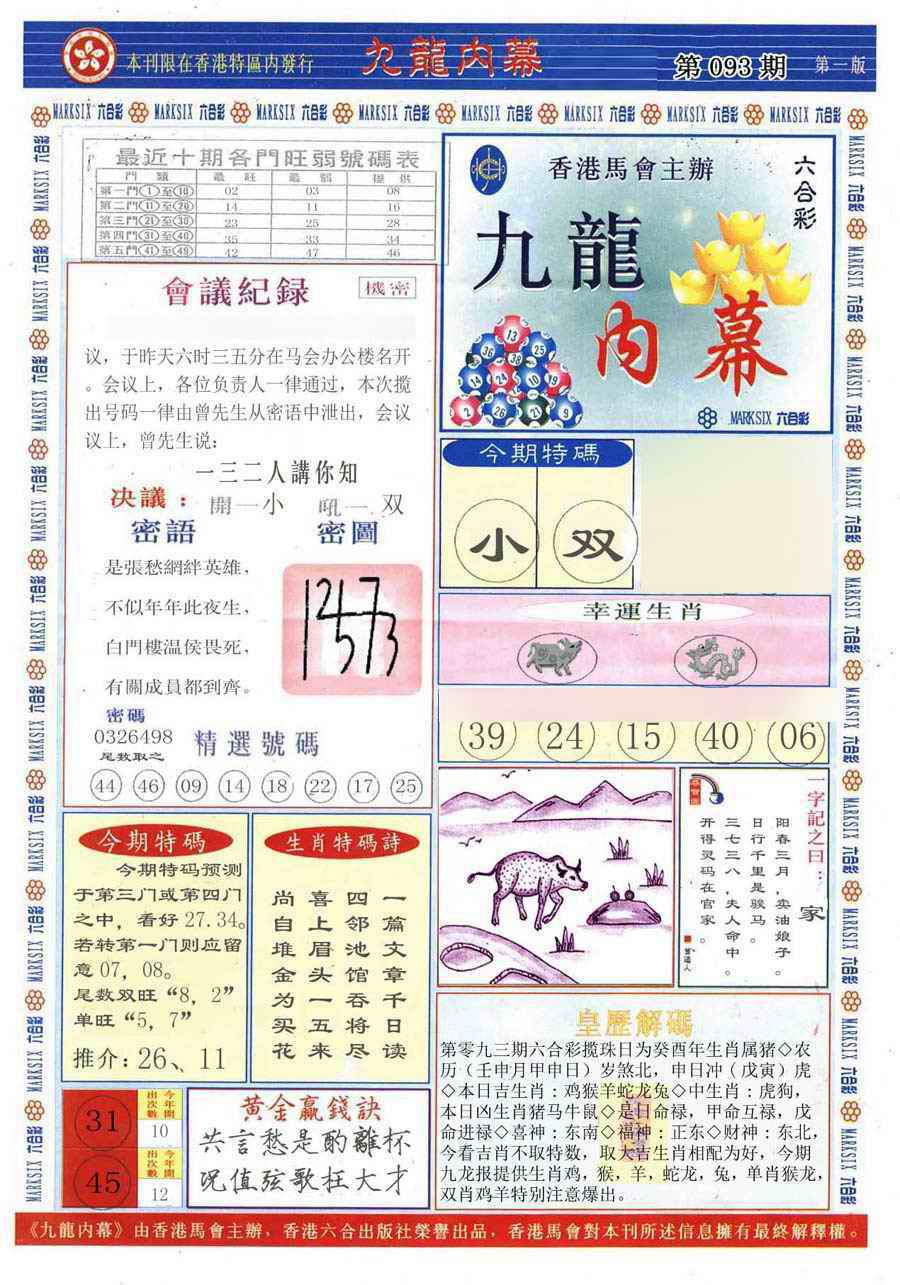 本刊限在香港特區内發行
九龍内幕
第 093 期
第一版
MARKSIX 六合彩 MARKSIX 六合彩 MARKSIX 六合彩 MARKSIX 六合彩 MARKSIX 六合彩 MARKSIX 六合彩 MARKSIX 六合彩 MARKSIX 六合彩
最近十期各門旺弱號碼表
門 類 最 旺 最 弱 提 供
第一門①至⑩ 02 03 08
第二門⑪至⑳ 14 11 16
第三門㉑至㉚ 23 25 28
第四門㉛至㊵ 35 33 34
第五門㊶至㊾ 42 47 46
香港馬會主辦
六合彩
九龍
内幕
13
36 38 25
14 24 10 19
2 26 21 9
MARKSIX 六合彩
會議紀録
機密
议，于昨天六时三五分在马会办公楼名开
。会议上，各位负责人一律通过，本次揽
出号码一律由曾先生从密语中泄出，会议
议上，曾先生说：
一三二人講你知
决議： 開一小 吼一双
密語 密圖
是張愁網絆英雄，
不似年年此夜生，
白門樓温侯畏死，
有關成員都到齊。
密碼
0326498
尾数取之
精選號碼
44 46 09 14 18 22 17 25
今期特碼
小 双
幸運生肖
39 24 15 40 06
一字記之曰：家
阳春三月，卖油娘子。
日行千里是骏马。
三七三八，夫人命中。
开得灵码在官家。
曾道人
今期特碼
今期特码预测
于第三门或第四门
之中，看好 27.34。
若转第一门则应留
意 07，08。
尾数双旺“8，2”
单旺“5，7”
推介：26、11
生肖特碼詩
尚喜四一
自上邻篇
堆眉池文
金头馆章
为一吞千
买五将日
花来尽读
31
今年開出次數
10
45
今年開出次數
12
黄金贏錢訣
共言愁是酌離杯
况值弦歌枉大才
皇歷解碼
第零九三期六合彩揽珠日为癸酉年生肖属猪◇农
历（壬申月甲申日）岁煞北，申日冲（戊寅）虎
◇本日吉生肖：鸡猴羊蛇龙兔◇中生肖：虎狗，
本日凶生肖猪马牛鼠◇是日命禄，甲命互禄，戊
命进禄◇喜神：东南◇福神：正东◇财神：东北，
今看吉肖不取特数，取大吉生肖相配为好，今期
九龙报提供生肖鸡，猴，羊，蛇龙，兔，单肖猴龙，
双肖鸡羊特别注意爆出。
《九龍内幕》由香港馬會主辦，香港六合出版社榮譽出品，香港馬會對本刊所述信息擁有最終解釋權。